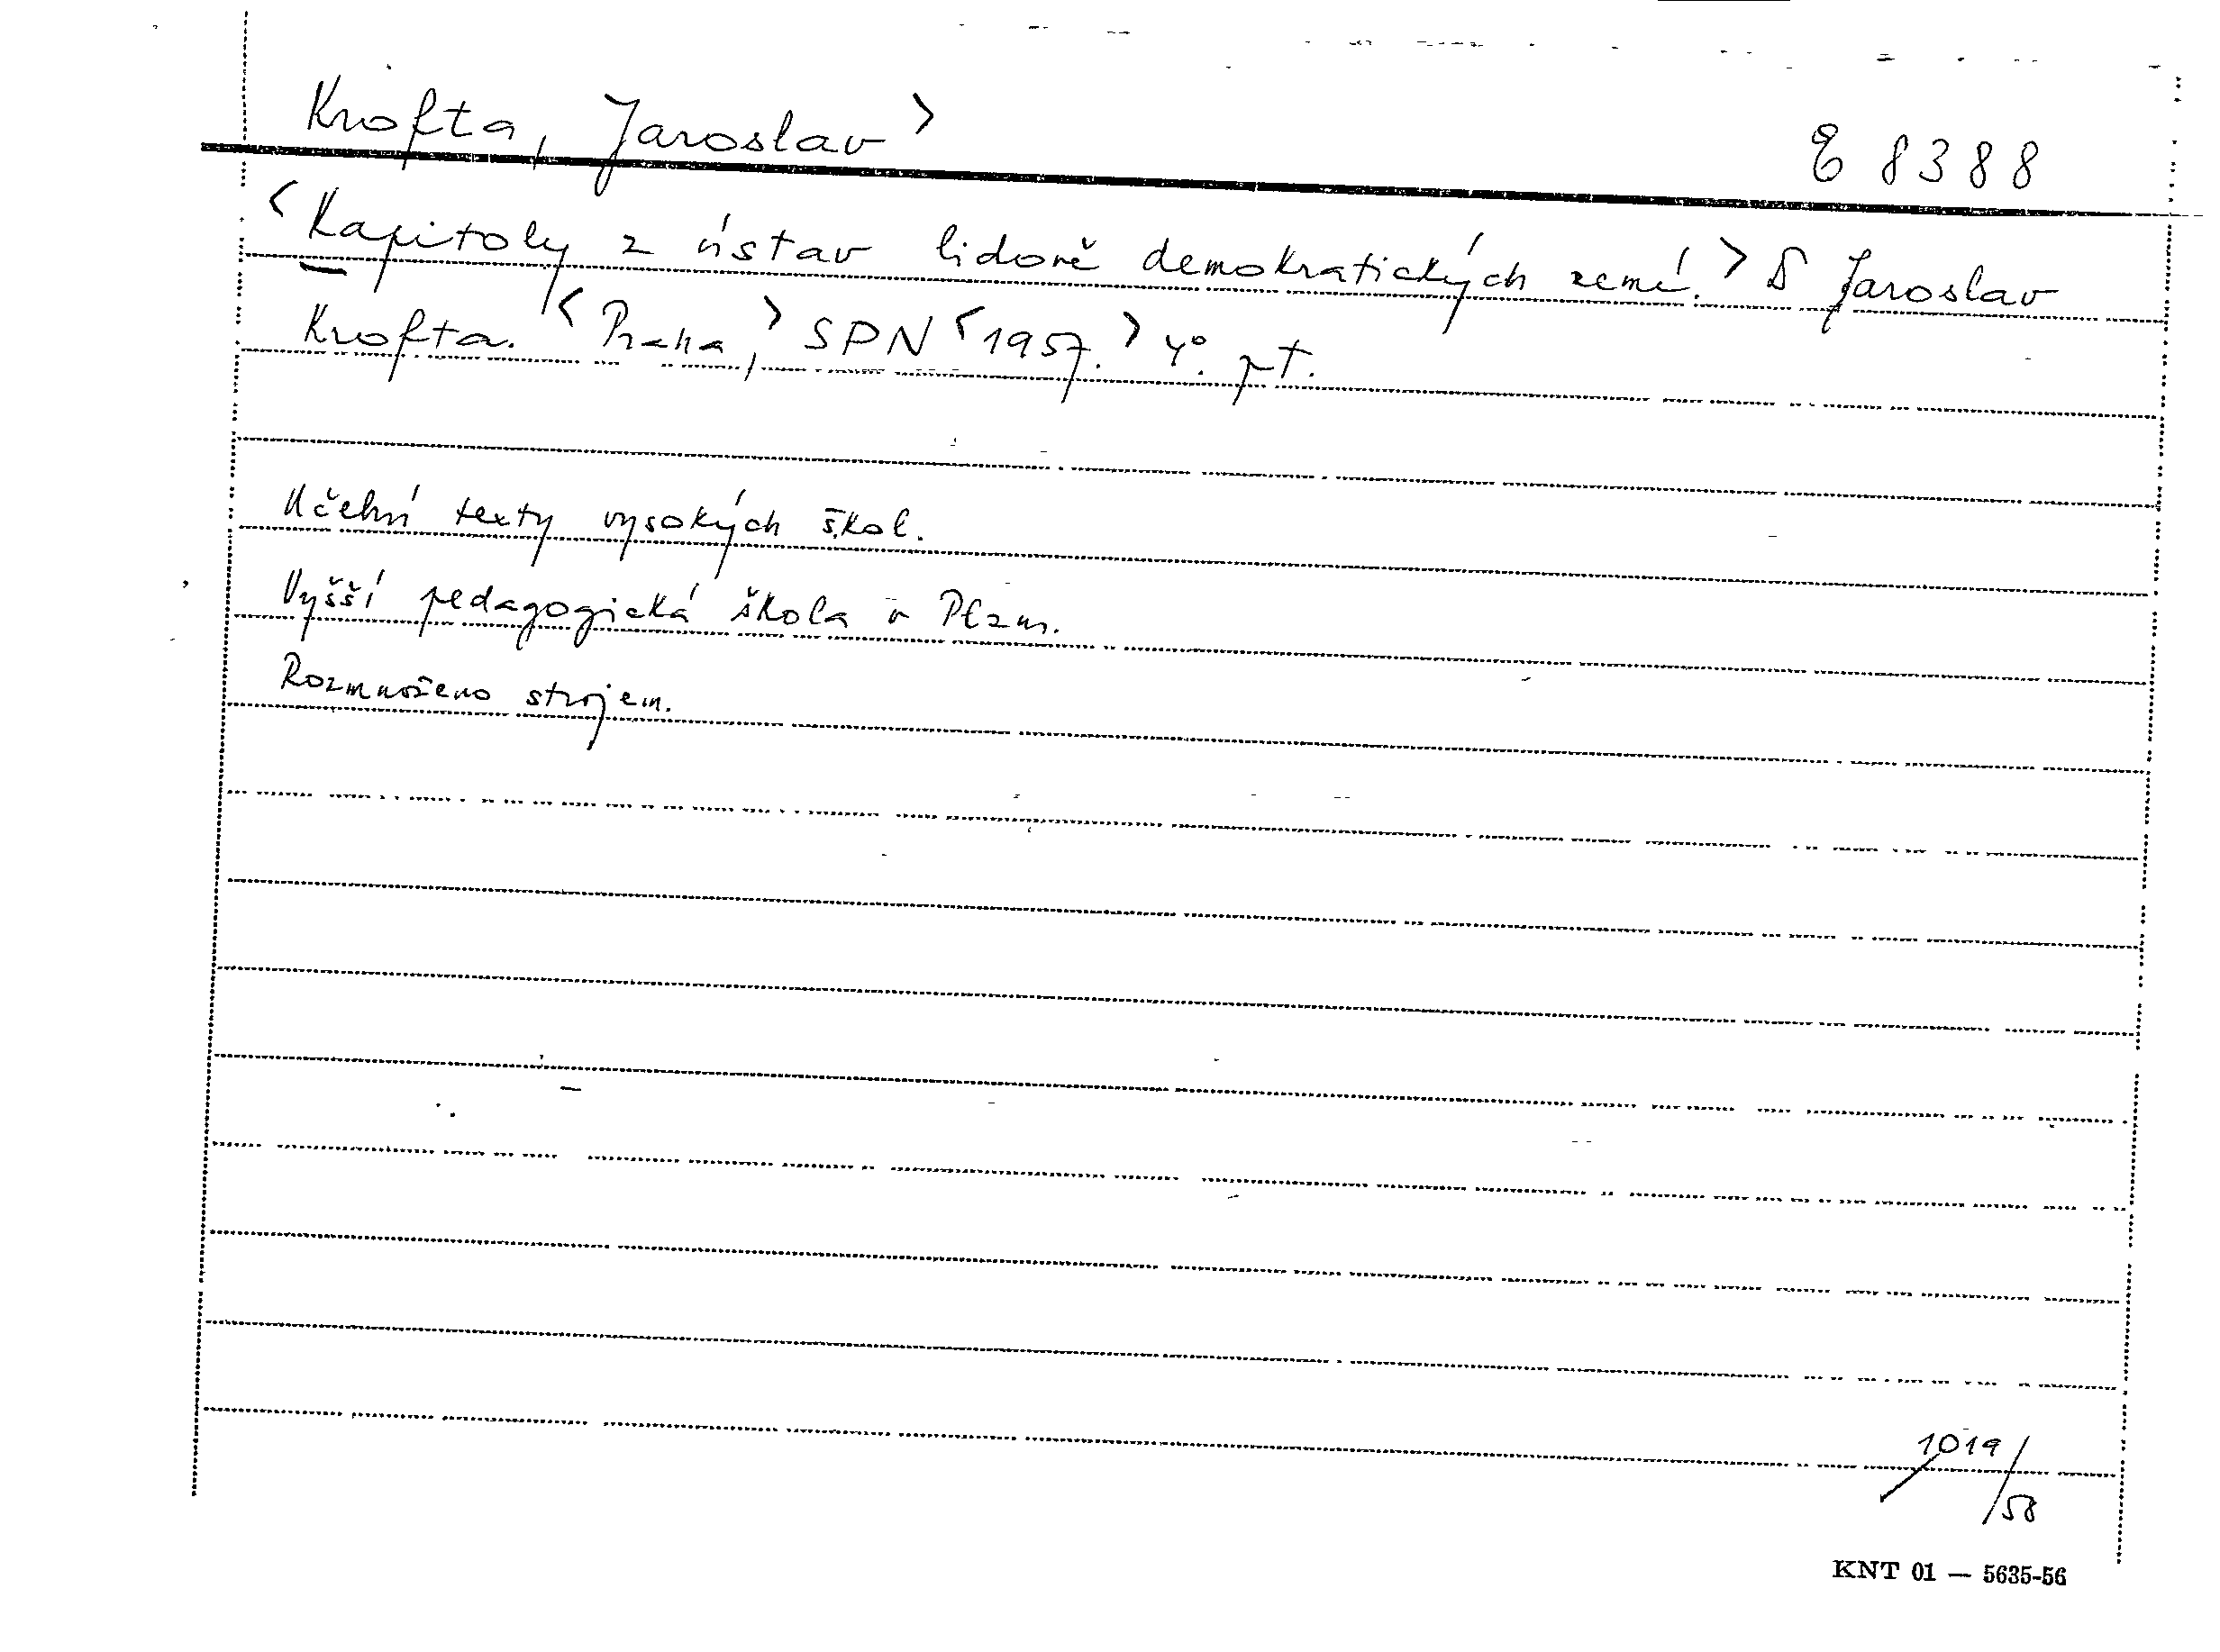 Krofta, Jaroslav >
E 8388
< Kapitoly z ústav lidově demokratických zemí. > Jaroslav
Krofta. < Praha, > SPN < 1957. > 4°. pt.
Učební texty vysokých škol.
Vyšší pedagogická škola v Plzni.
Rozmnoženo strojem.
1019/58
KNT 01 — 5635-56